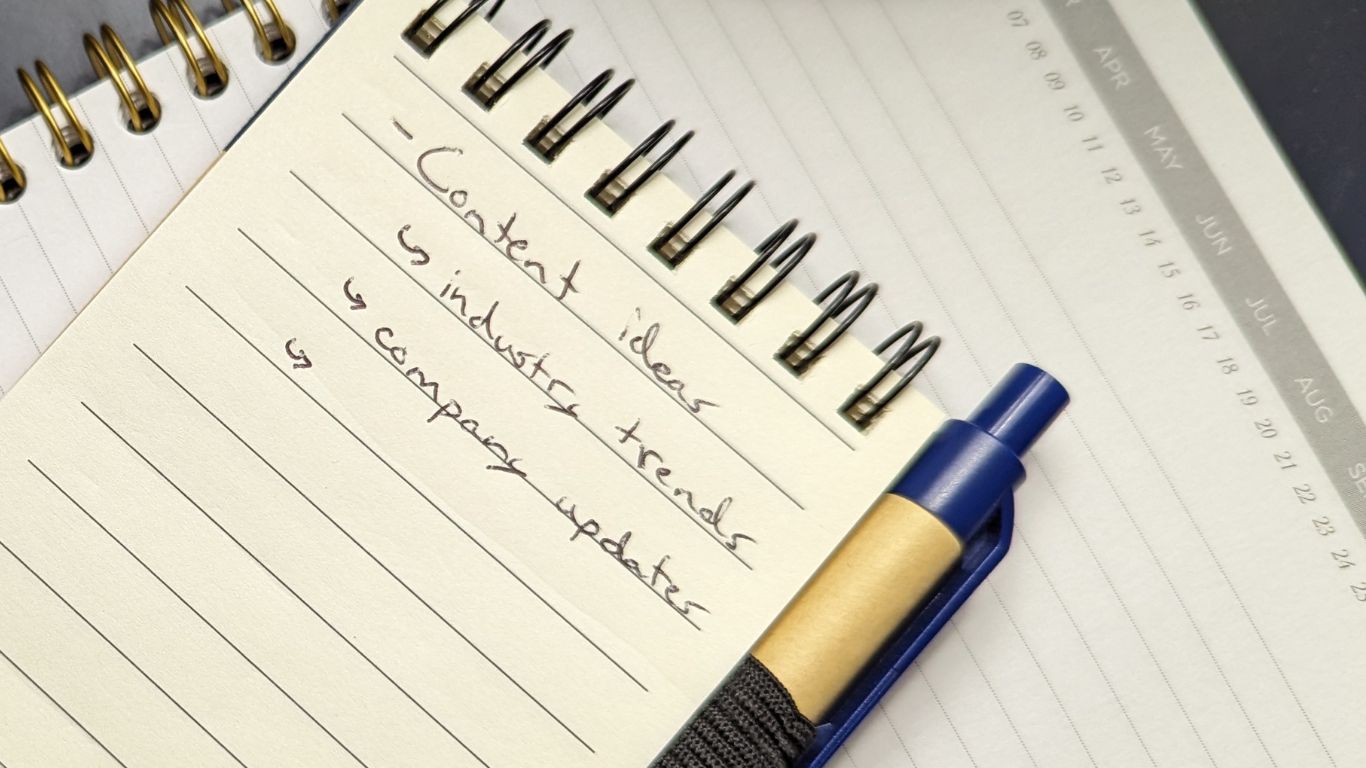 - Content ideas
↳ industry trends
↳ company updates
↳
APR
MAY
JUN
JUL
AUG
07 08 09 10 11 12 13 14 15 16 17 18 19 20 21 22 23 24 25